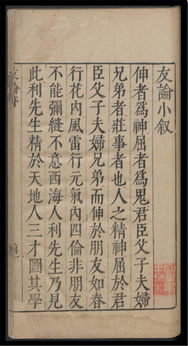 友論小叙
伸者為神屈者為鬼君臣父子夫婦
兄弟者莊事者也人之精神屈於君
臣父子夫婦兄弟而伸於朋友如春
行花內風雷行元氣內四倫非朋友
不能彌縫不意西海人利先生乃見
此利先生精於天地人三才圖其學